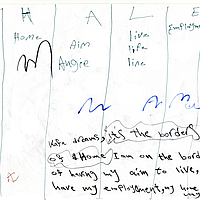 H A L E
Home Aim live Employme
Angie life
line
Kofte dreams, it's the borders
of Home I am on the bord
of having my aim to live,
have my employment, my line
my